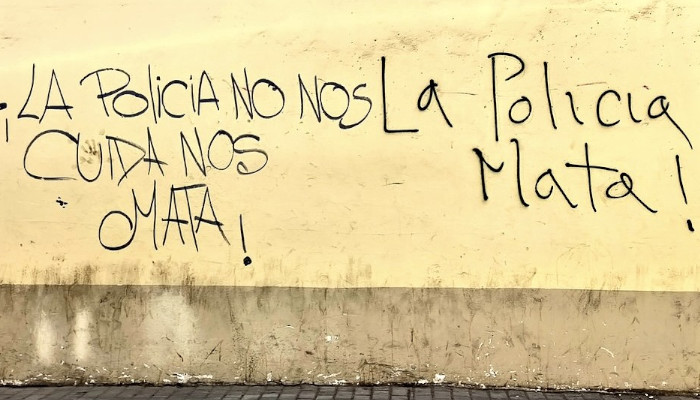 ¡LA POLICIA NO NOS
CUIDA NOS
MATA!
La Policia
Mata!